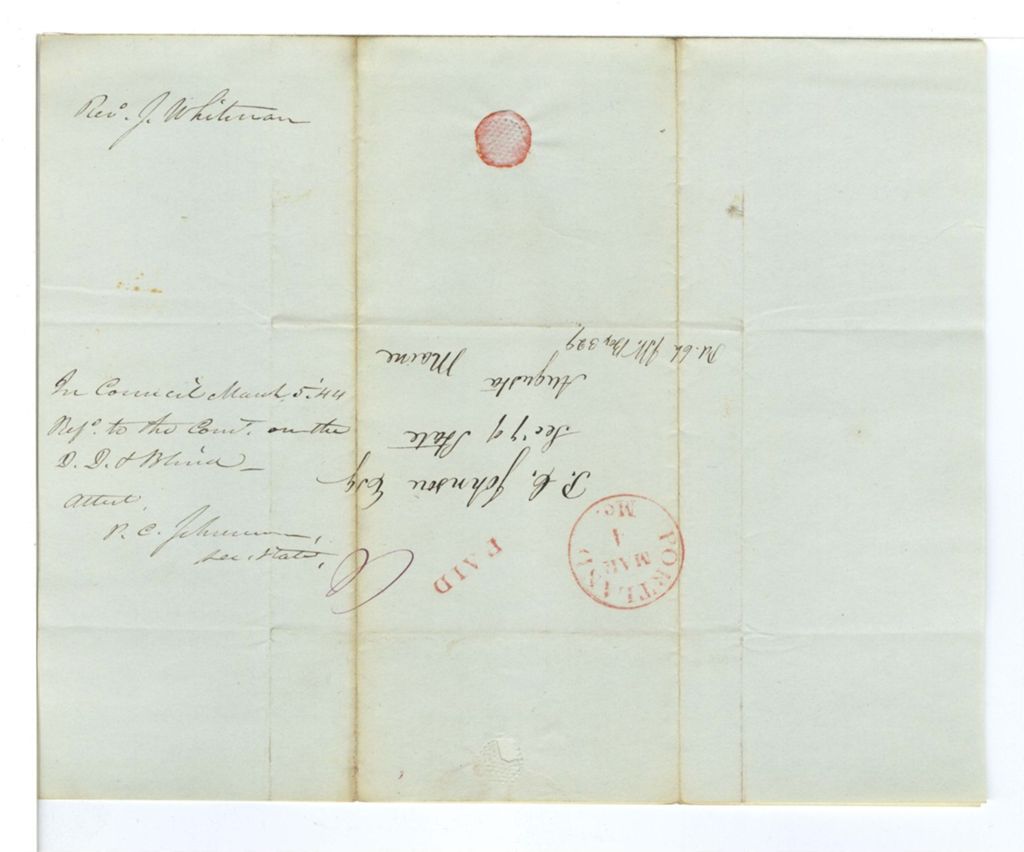 Revᵈ. J. Whitman
In Council March 5. '44
Refᵈ. to the Comᵉ. on the
D. D. & Blind
Attest,
P. C. Johnson,
Sec. State,
P. C. Johnson Esq
Sec'y of State
Augusta
Maine
Pd. Ch. Box 329
PAID
PORTLAND
MAR
1
Me.
6